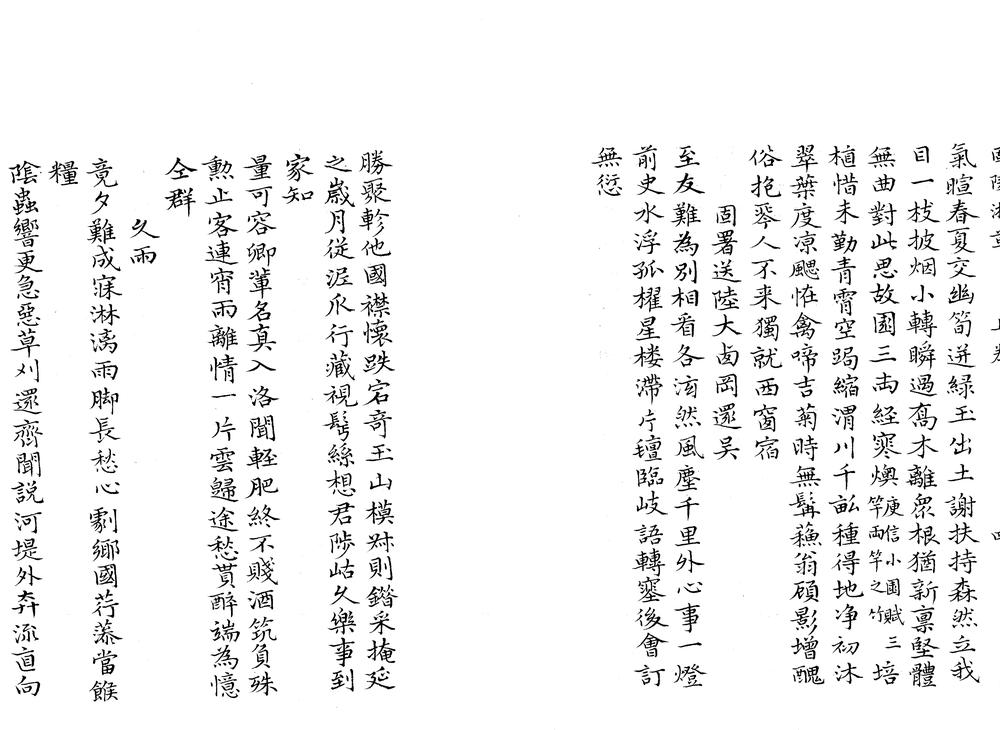 氣暄春夏交幽筍迸綠玉出土謝扶持森然立我
目一枝披烟小轉瞬過喬木離眾根猶新稟堅體
無曲對此思故園三畝経寒燠庾信小園賦三竿兩竿之竹培
植惜未勤青霄空跼縮渭川千畝種得地净初沐
翠葉度凉颸恠禽啼吉菊時無髯蘓翁顾影增醜
俗抱琴人不来獨就西窗宿
固署送陸大卤岡還吴
至友難為別相看各泫然風塵千里外心事一燈
前史水浮孤櫂星楼滯片氊臨岐語轉蹇後會訂
無愆
勝聚軫他國襟懷跌宕竒玉山模㪷則鍇采掩延
之歲月従泥爪行藏視鬓絲想君陟岵久樂事到
家知
量可容卿輩名真入洛聞軽肥終不賤酒筑負殊
勲止客連宵雨離情一片雲歸途愁貰醉端為憶
仝群
久雨
竟夕難成寐淋漓雨脚長愁心劇鄉國荇蔆當餱
糧
陰蟲響更急惡草刈還齊聞説河堤外奔流直向